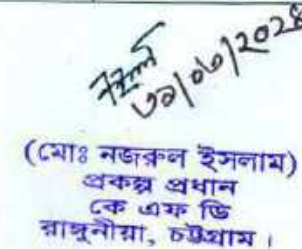 ৩১/০৩/২০২৪
(মোঃ নজরুল ইসলাম)
প্রকল্প প্রধান
কে এফ ডি
রাঙ্গুনীয়া, চট্টগ্রাম।